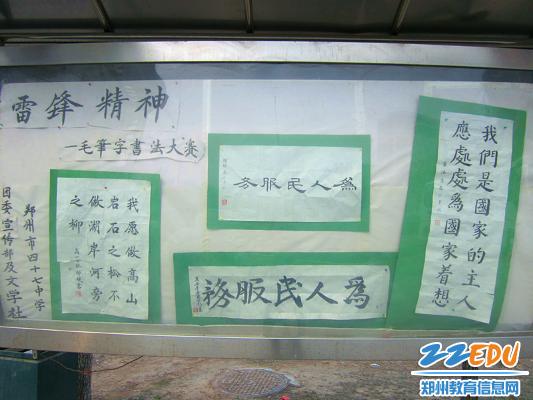 雷鋒精神
一毛筆字書法大赛
郑州市四十七中学
团委宣传部及文学社
我愿做高山
岩石之松不
做湖岸河旁
之柳
為人民服务
為人民服務
我們是國家的主人
應處處為國家着想
ZZEDU
郑州教育信息网